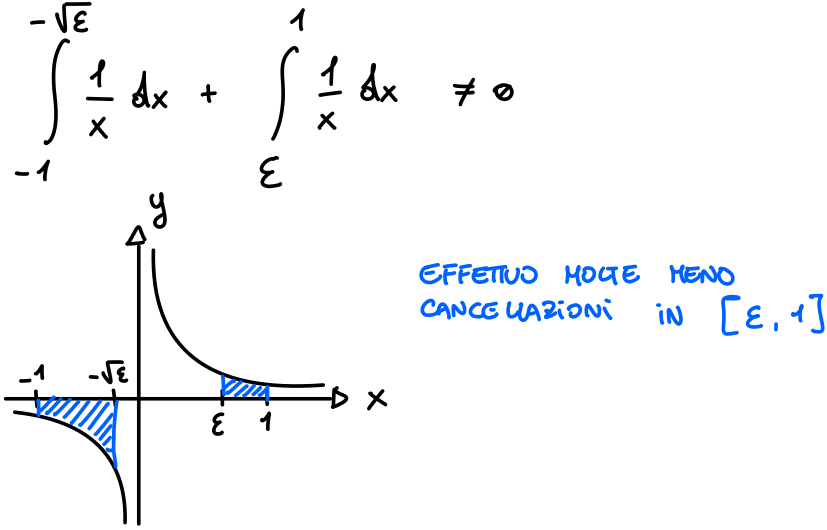 ∫_{-1}^{-√ε} 1/x dx + ∫_{ε}^{1} 1/x dx ≠ 0
y
EFFETTUO MOLTE MENO
CANCELLAZIONI IN [ε, 1]
-1 -√ε
x
ε 1